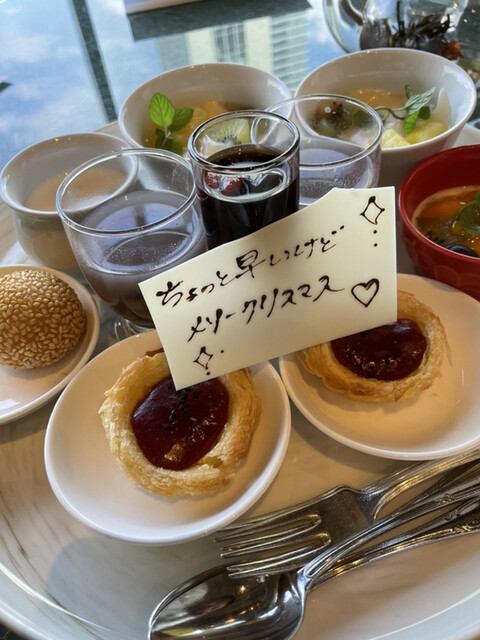 ちょっと早いけど
メリークリスマス♡